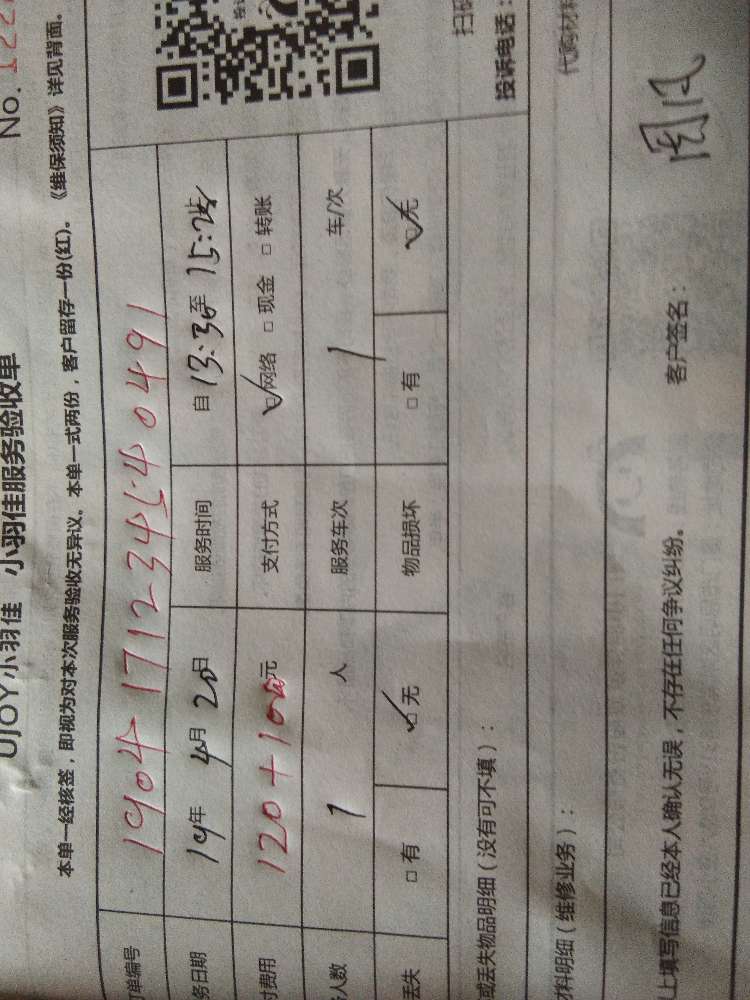 UJOY小羽佳 小羽佳服务验收单
No. 122
本单一经核签，即视为对本次服务验收无异议。本单一式两份，客户留存一份(红)。《维保须知》详见背面。
单编号 1904171234540491
务日期 19年 4月 20日 服务时间 自 13:30 至 15:25
费用 120+100元 支付方式 ☑网络 □现金 □转账
人数 1 人 服务车次 1 车/次
丢失 □有 ☑无 物品损坏 □有 ☑无
或丢失物品明细（没有可不填）：
投诉电话：
料明细（维修业务）：
代购材料
上填写信息已经本人确认无误，不存在任何争议纠纷。
客户签名：